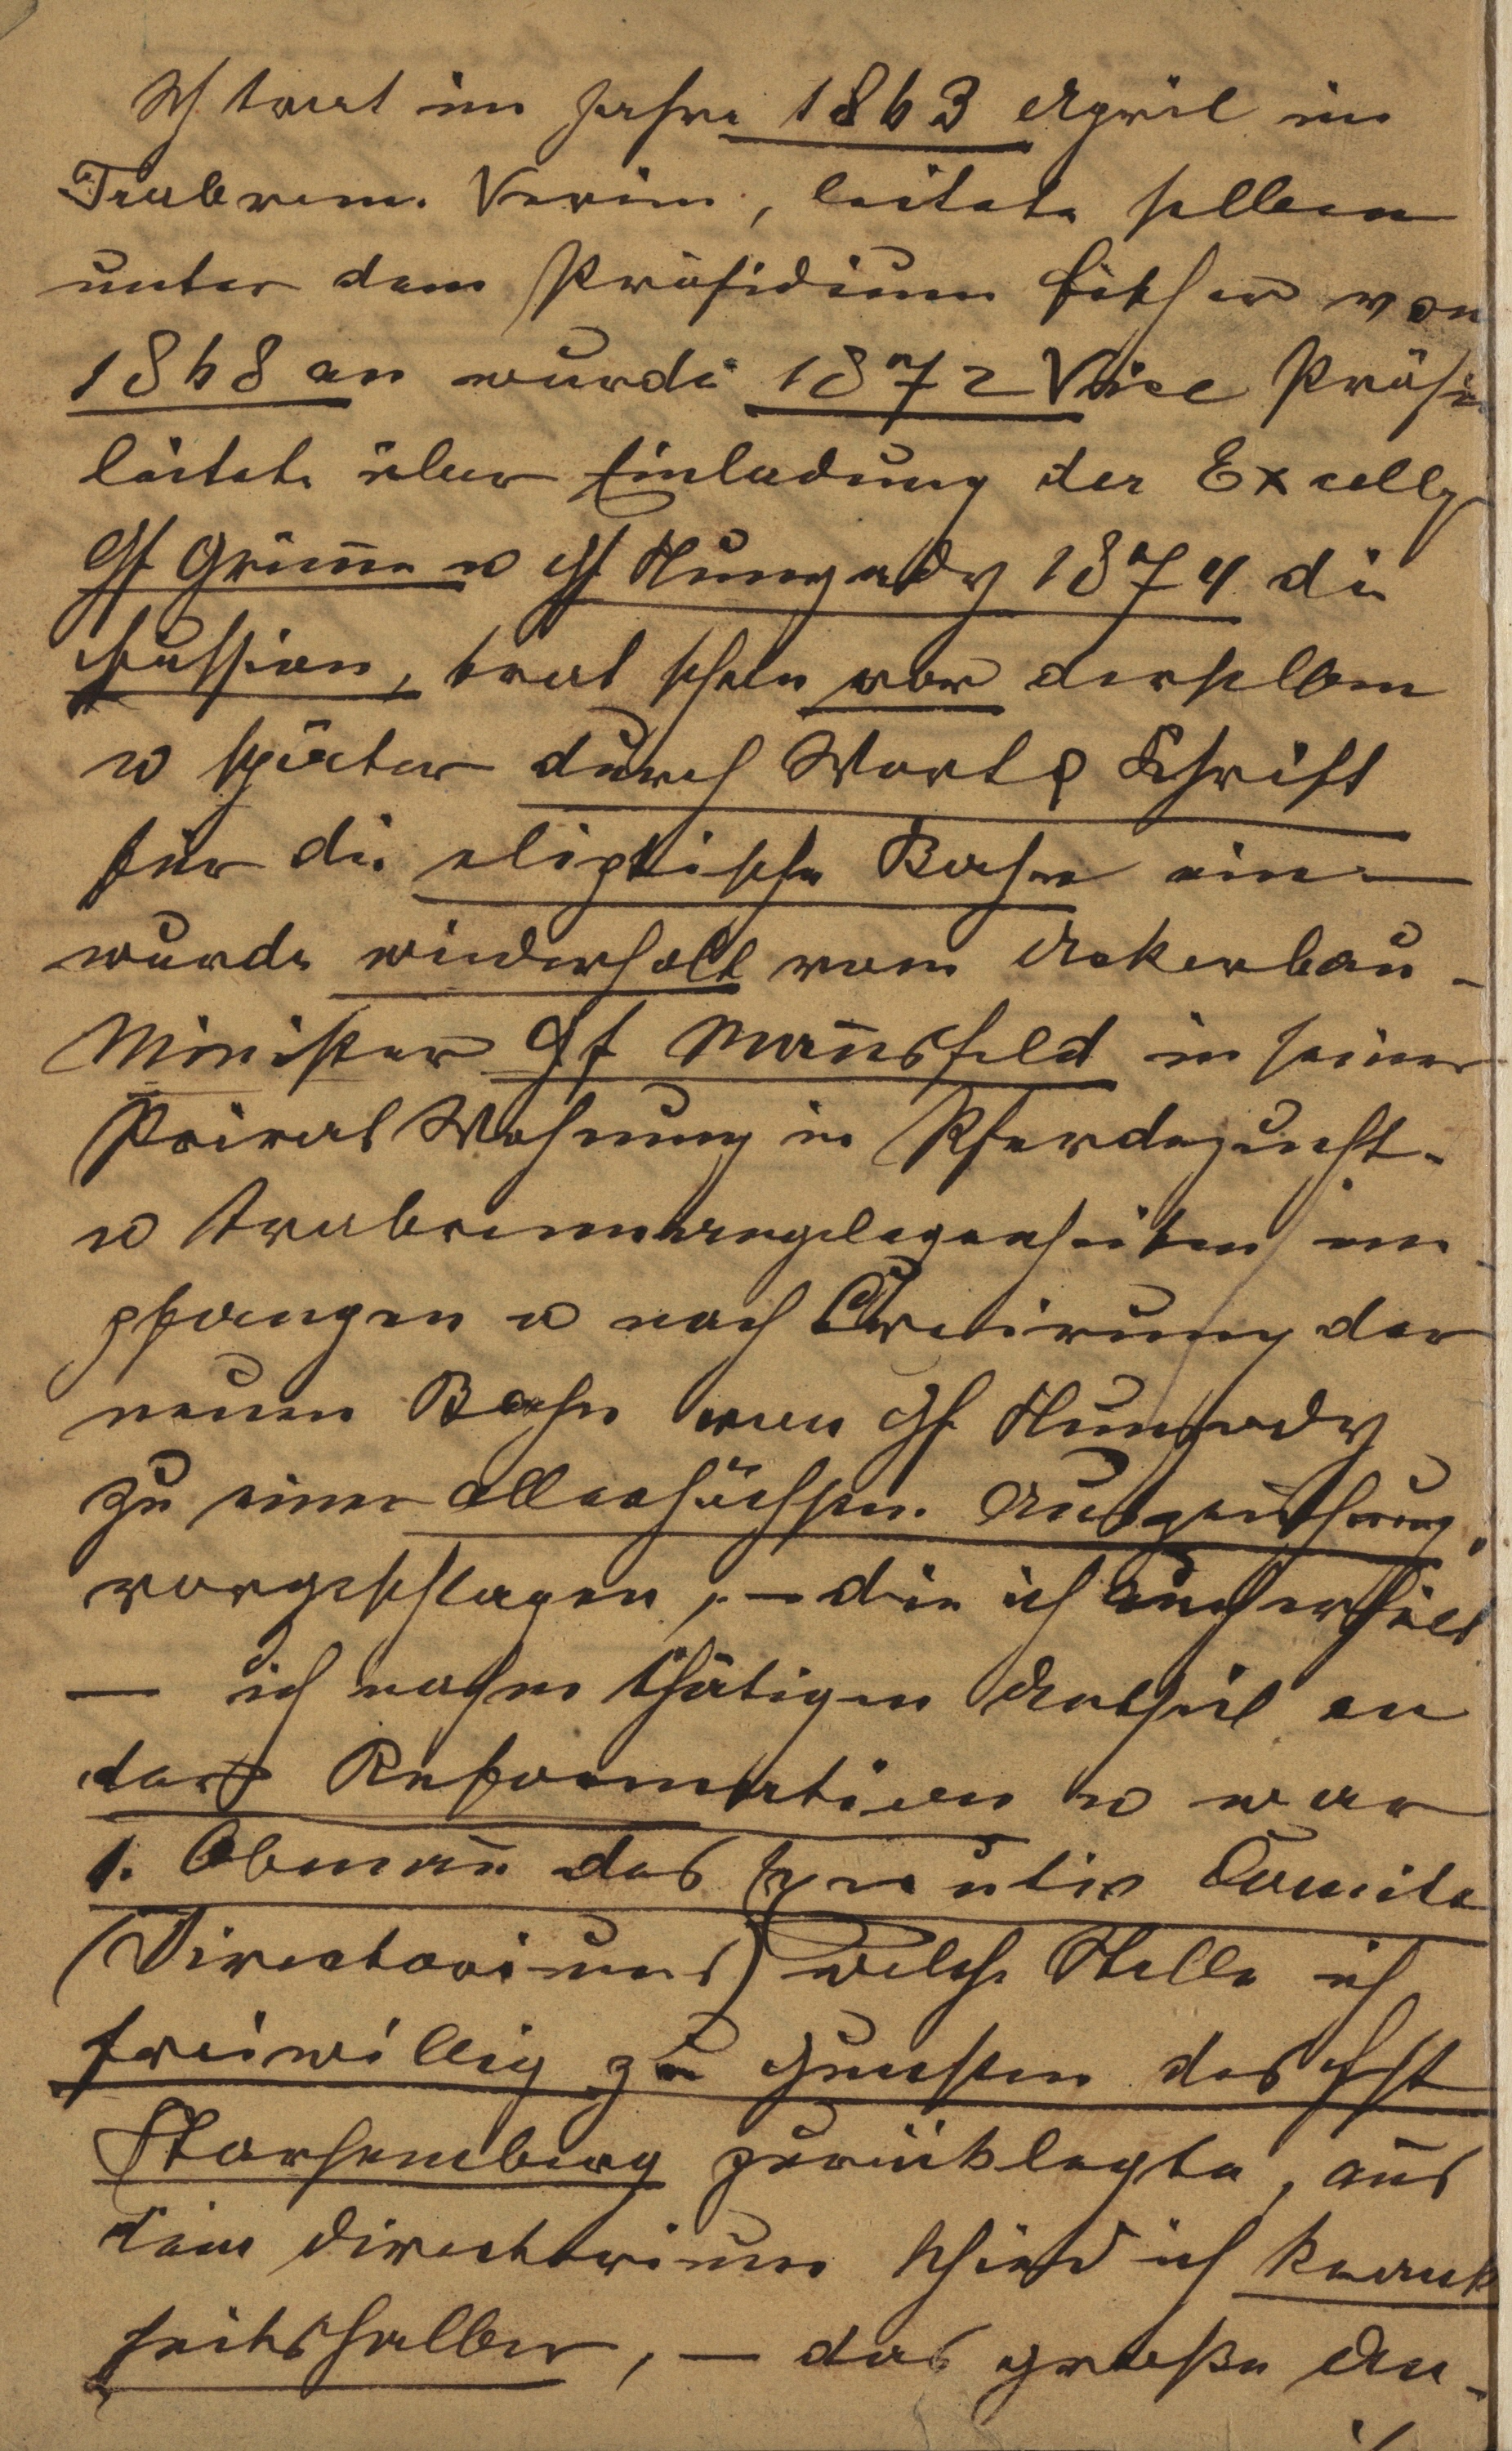 Ich trat im Jahre 1863 April in
Trabrenn. Verein, leitete selben
unter dem Präsidium  von
1868 an wurde 1872 Vice Präsi
leitete über Einladung der Excellz
Gf Grünne u Gf Hunyady 1874 die
 trat schon vor derselben
u später durch Wort & Schrift
für die eliptische Bahn ein
wurde wiederholt vom Ackerbau-
Minister Gf Mannsfeld in seiner
Privat Wohnung in Pferdezucht-
u Trabrennangelegenheiten em
pfangen u nach Creirung der
neuen Bahn von Gf Hunyady
zu einer allerhöchsten Auszeichnung
vorgeschlagen, – die ich auch erhielt
– ich nahm thätigen Antheil an
der Reformation u war
1. Obmann des Executiv Comite
(Directoriums) welche Stelle ich
freiwillig zu Gunsten des Fst
Starhemberg zurücklegte, aus
dem Directorium schied ich krank
heitshalber, – das große An-